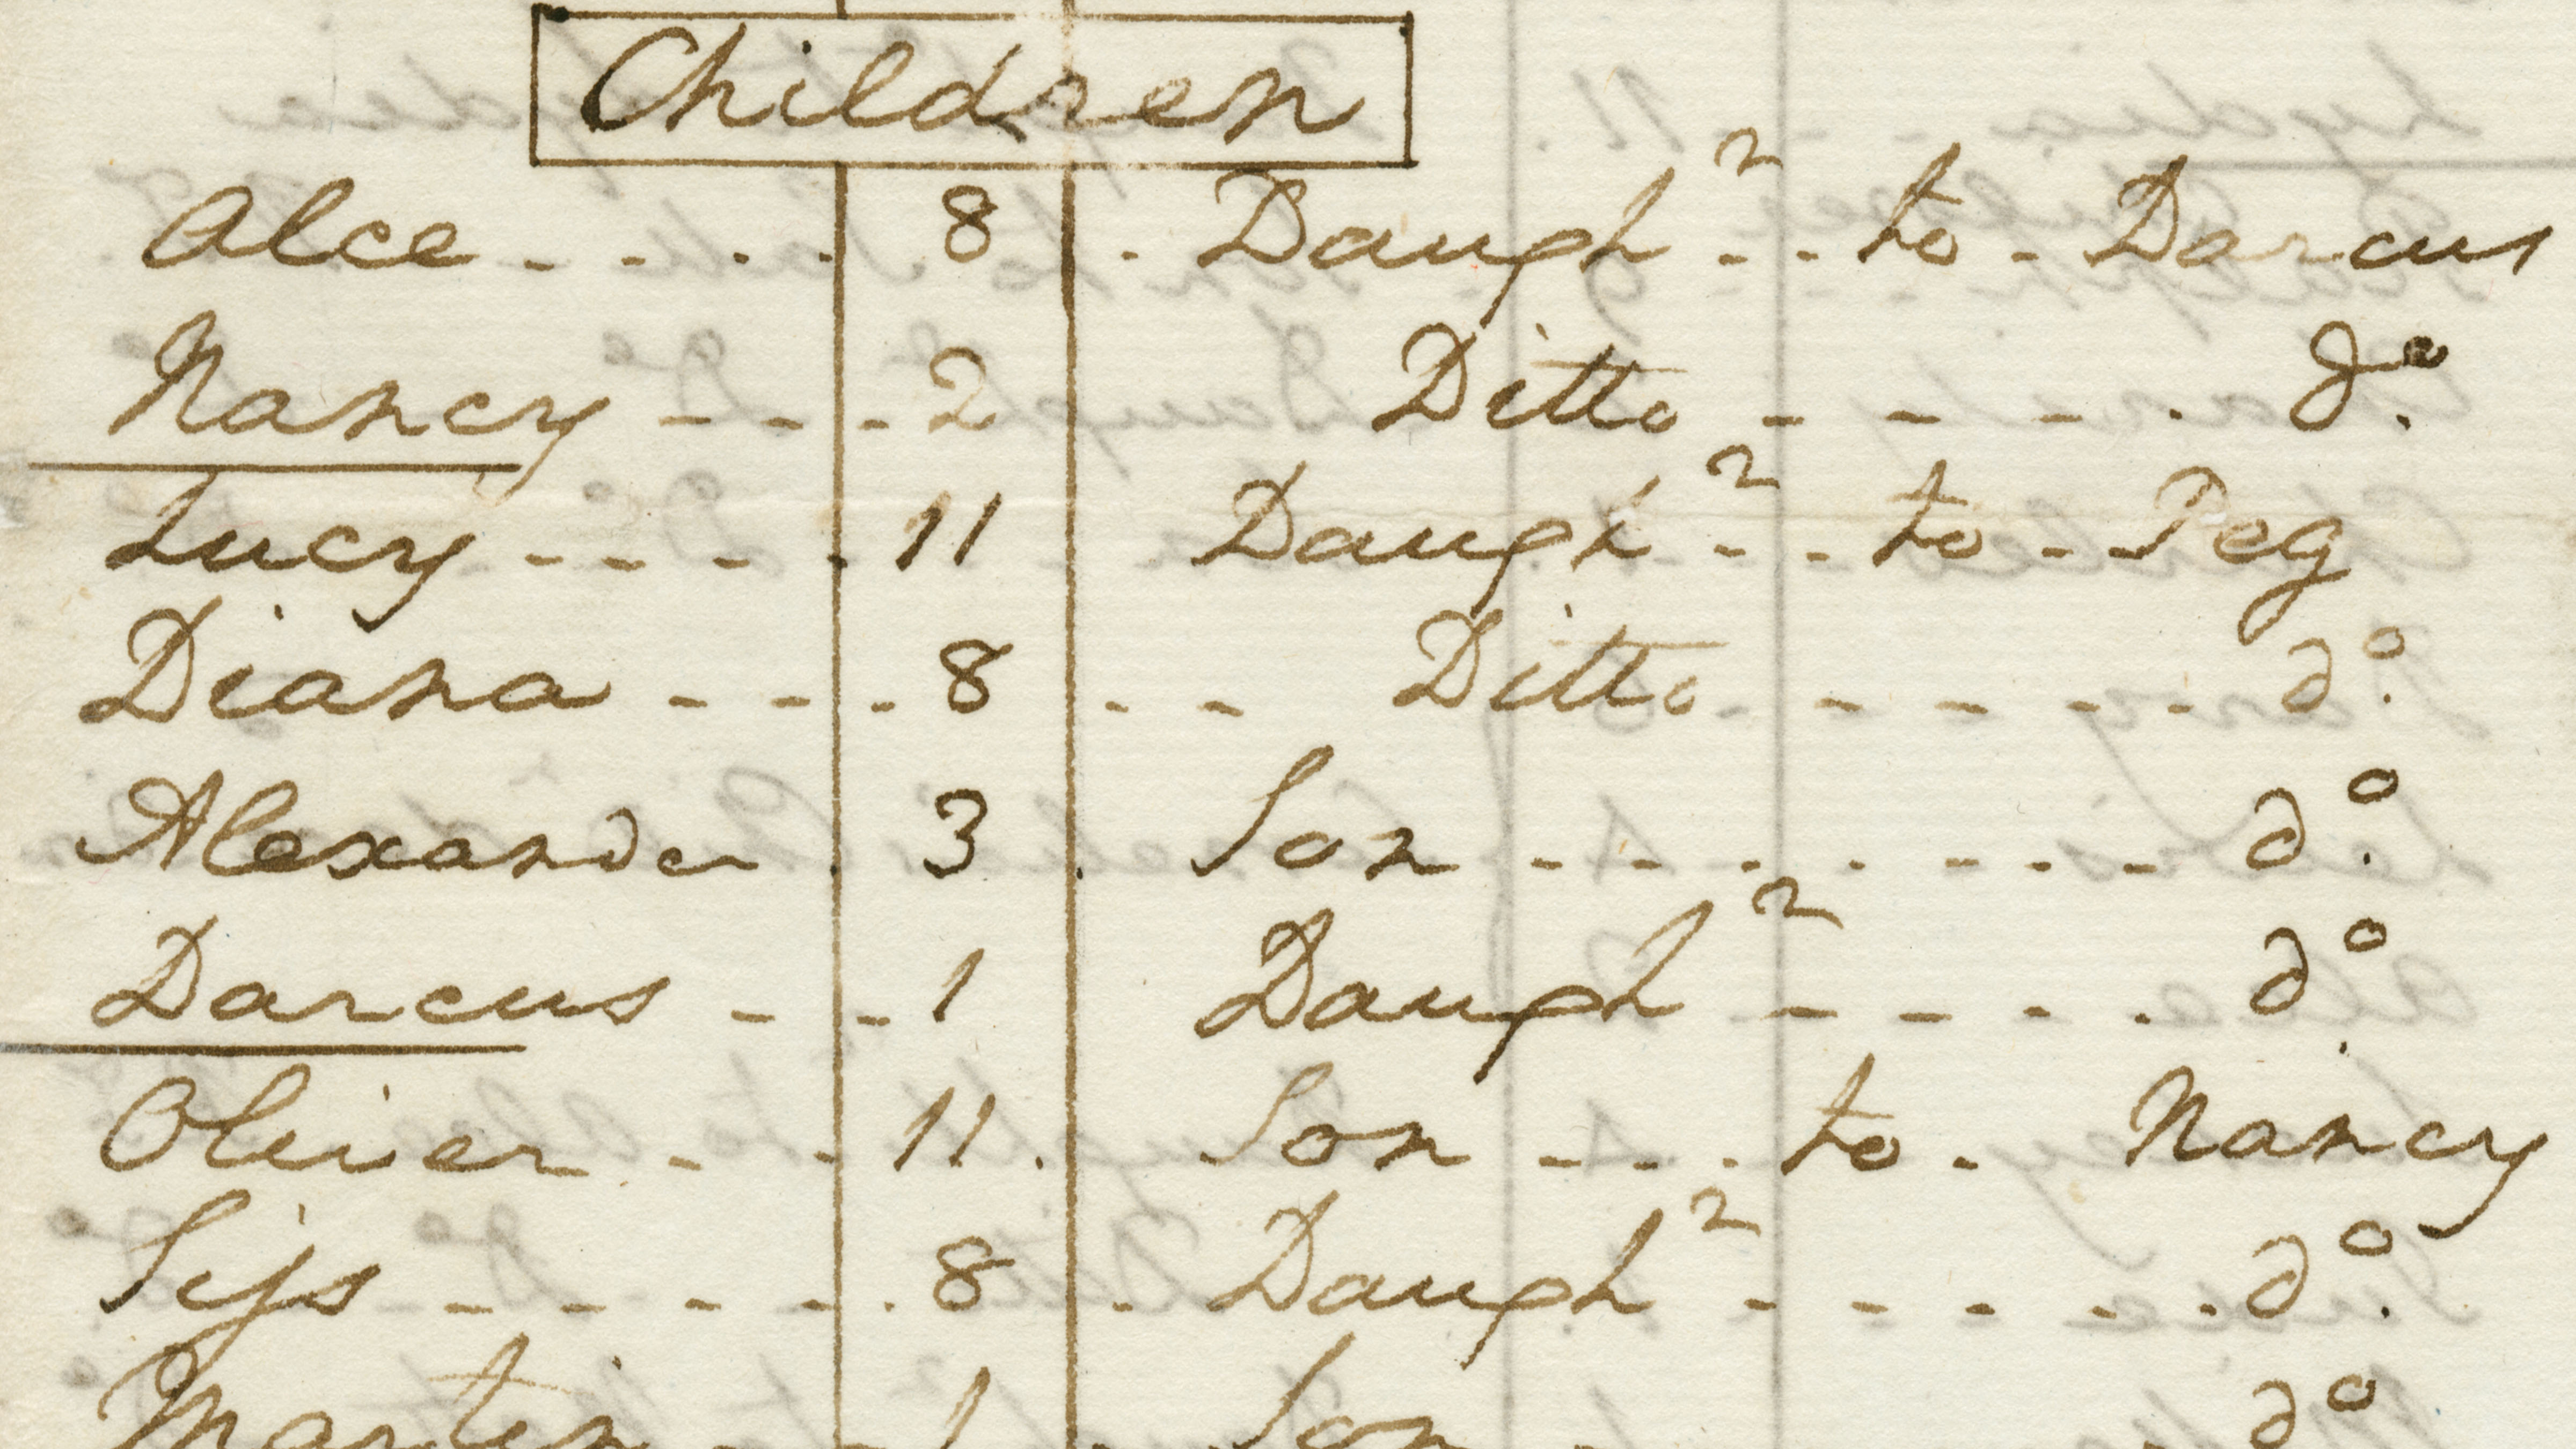 Children
Alce - - - - 8 - Daugh^r - - to - Darcus
Nancy - - - 2 Ditto - - - - d^o.
Lucy - - - - 11 Daugh^r - - to - Peg
Diana - - - 8 - - Ditto - - - - - d^o.
Alexander . 3 . Son - - - - - - - d^o.
Darcus - - 1 Daugh^r - - - - d^o.
Oliver - - - 11 . Son - - - to - Nancy
Sijs - - - - - 8 - Daugh^r - - - - - d^o.
Martin - - 1 - Son - - d^o